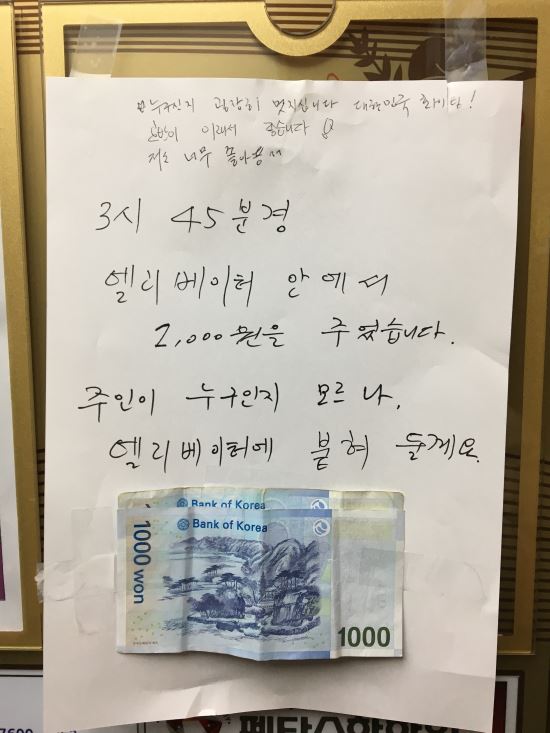 누구인지 굉장히 멋지십니다 대한민국 화이팅!
이래서 좋습니다
저도 너무 좋아용
3시 45분경
엘리베이터 안에서
2,000원을 주웠습니다.
주인이 누구인지 모르나,
엘리베이터에 붙혀 둘게요.
Bank of Korea
Bank of Korea
1000 won
1000